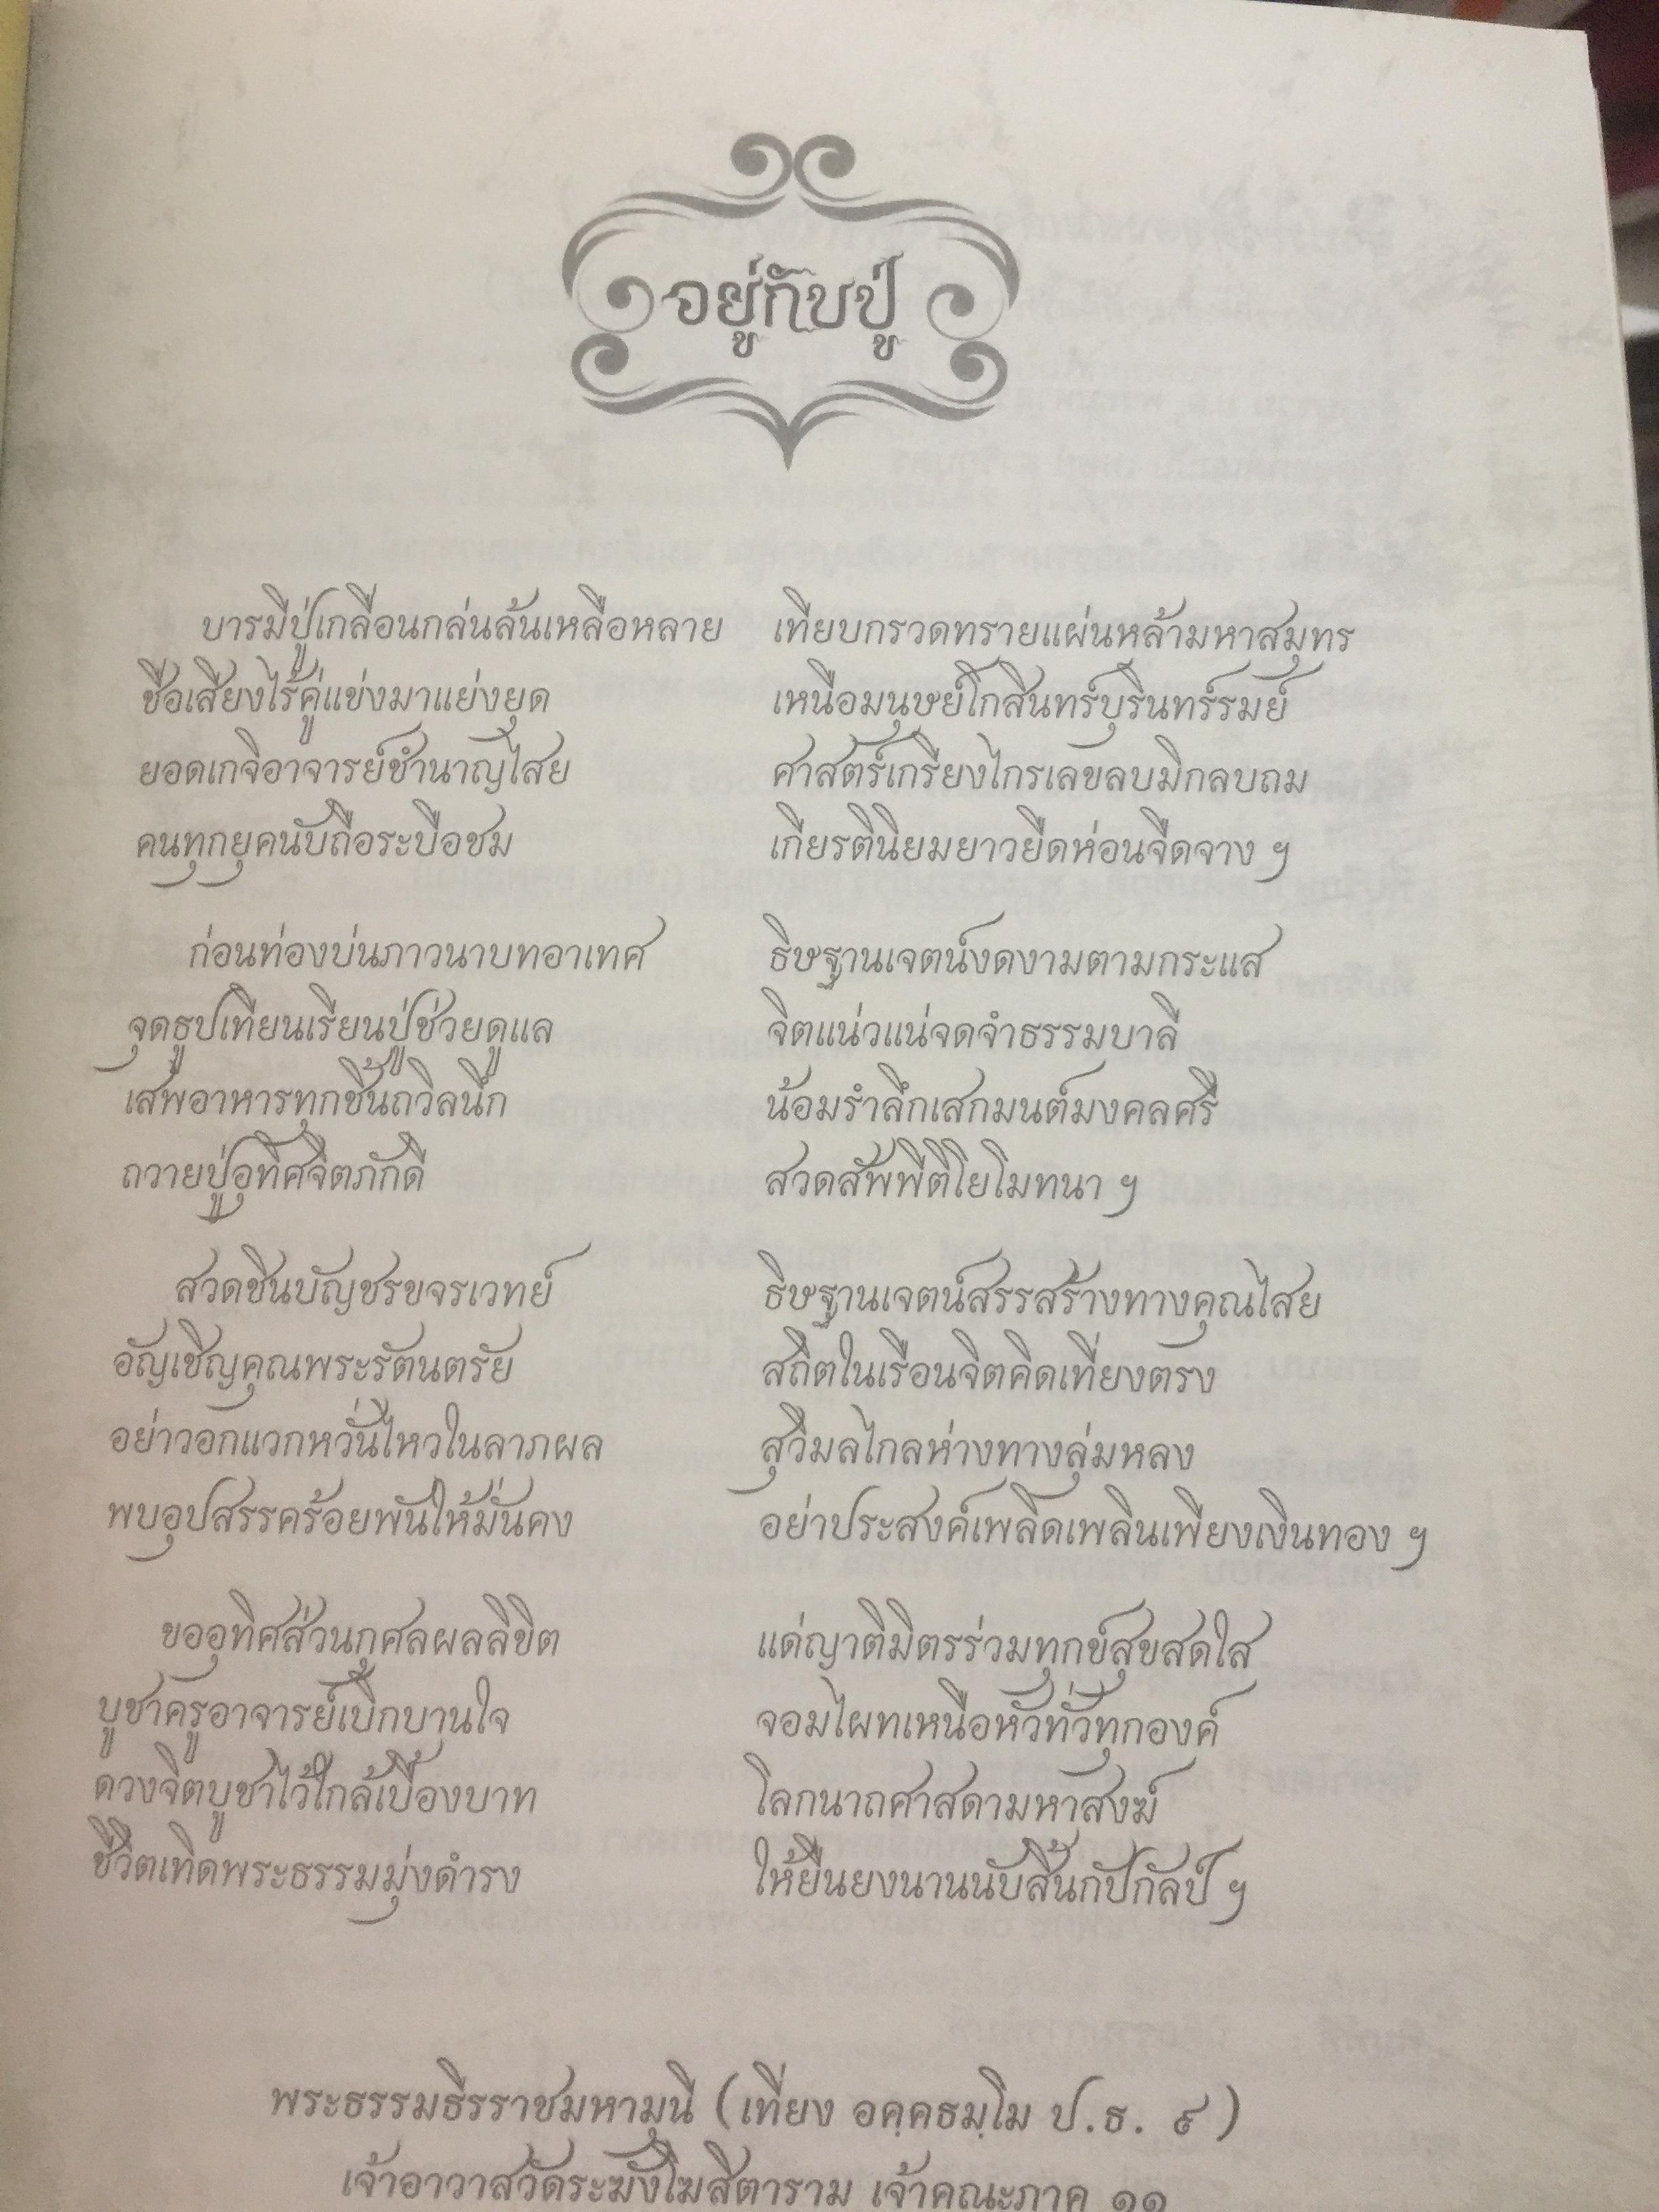 อยู่กับปู่
บารมีปู่เกลื่อนกล่นล้นเหลือหลาย เทียบกรวดทรายแผ่นหล้ามหาสมุทร
ชื่อเสียงไร้คู่แข่งมาแย่งยุด เหนือมนุษย์โกสินทร์บุรินทร์รมย์
ยอดเกจิอาจารย์ชำนาญไสย ศาสตร์เกรียงไกรเลขลบมิกลบถม
คนทุกยุคนับถือระบือชม เกียรตินิยมยาวยืดห่อนจืดจาง ฯ
ก่อนท่องบ่นภาวนาบทอาเทศ ธิษฐานเจตน์งดงามตามกระแส
จุดธูปเทียนเรียนปู่ช่วยดูแล จิตแน่วแน่จดจำธรรมบาลี
เสพอาหารทุกชิ้นถวิลนึก น้อมรำลึกเสกมนต์มงคลศรี
ถวายปู่อุทิศจิตภักดี สวดสัพพีติโยโมทนา ฯ
สวดชินบัญชรขจรเวทย์ ธิษฐานเจตน์สรรสร้างทางคุณไสย
อัญเชิญคุณพระรัตนตรัย สถิตในเรือนจิตคิดเที่ยงตรง
อย่าวอกแวกหวั่นไหวในลาภผล สุวิมลไกลห่างทางลุ่มหลง
พบอุปสรรคร้อยพันให้มั่นคง อย่าประสงค์เพลิดเพลินเพียงเงินทอง ฯ
ขออุทิศส่วนกุศลผลลิขิต แด่ญาติมิตรร่วมทุกข์สุขสดใส
บูชาครูอาจารย์เบิกบานใจ จอมไผทเหนือหัวทั่วทุกองค์
ดวงจิตบูชาไว้ใกล้เบื้องบาท โลกนาถศาสดามหาสงฆ์
ชีวิตเทิดพระธรรมมุ่งดำรง ให้ยืนยงนานนับสิ้นกัปกัลป์ ฯ
พระธรรมธีรราชมหามุนี (เที่ยง อคฺคธมฺโม ป.ธ. ๙)
เจ้าอาวาสวัดระฆังโฆสิตาราม เจ้าคณะภาค ๑๑